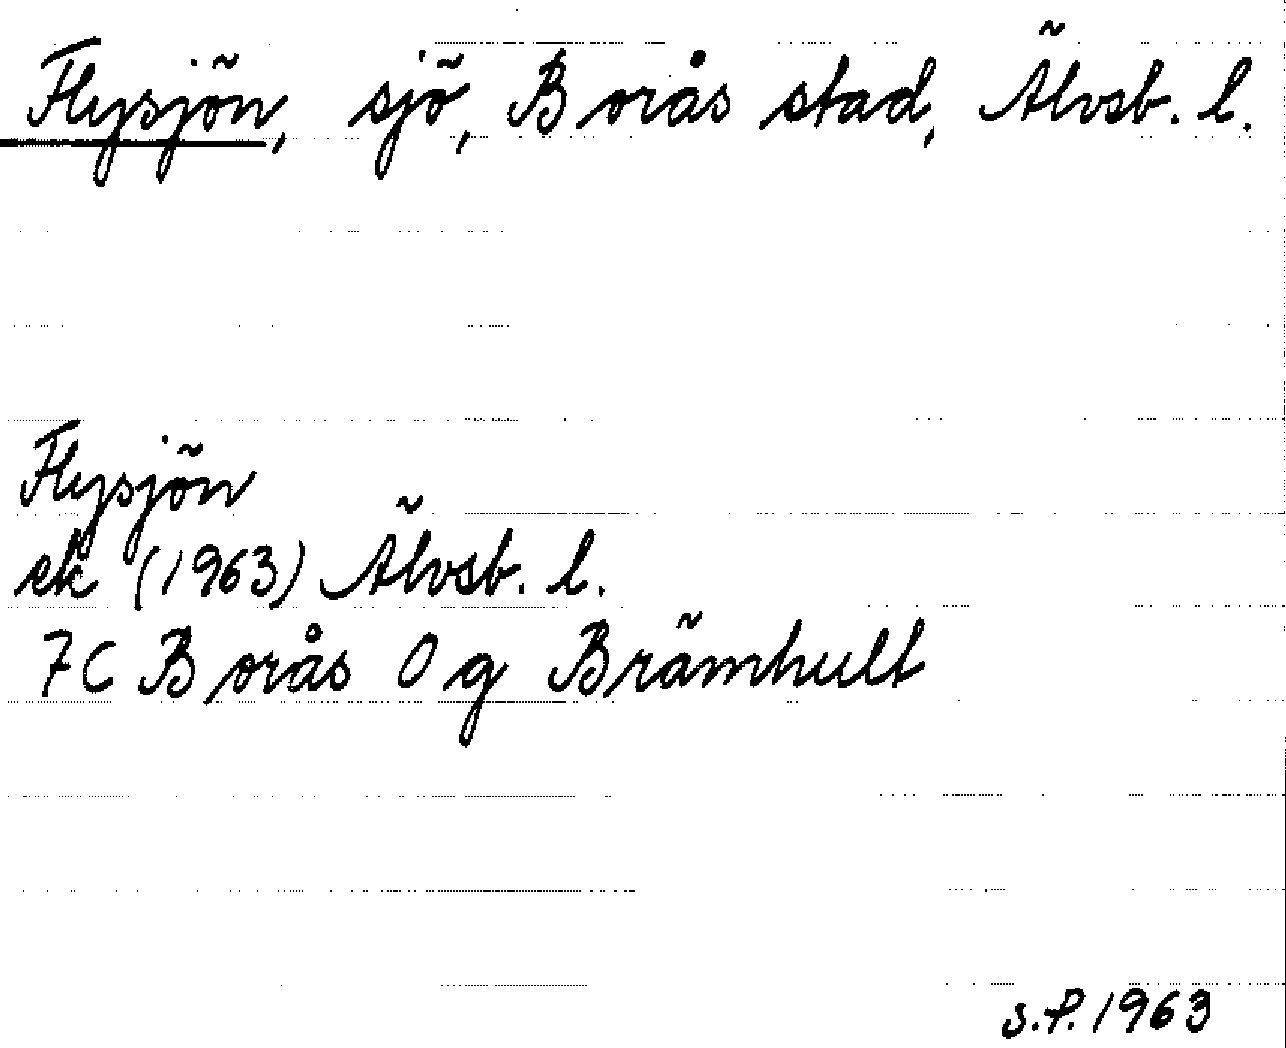 Flysjön, sjö, Borås stad, Älvsb. l.
Flysjön
ek (1963) Älvsb. l.
7C Borås 0g Brämhult
S.P. 1963